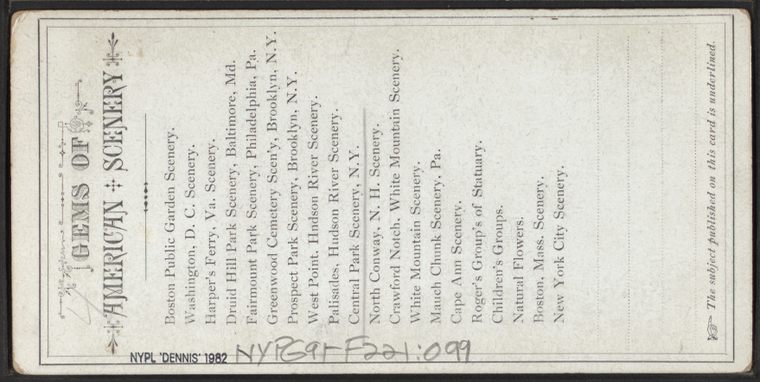 GEMS OF
AMERICAN SCENERY
Boston Public Garden Scenery.
Washington, D. C. Scenery.
Harper's Ferry, Va. Scenery.
Druid Hill Park Scenery, Baltimore, Md.
Fairmount Park Scenery, Philadelphia, Pa.
Greenwood Cemetery Scen'y, Brooklyn, N.Y.
Prospect Park Scenery, Brooklyn, N.Y.
West Point, Hudson River Scenery.
Palisades, Hudson River Scenery.
Central Park Scenery, N.Y.
North Conway, N. H. Scenery.
Crawford Notch, White Mountain Scenery.
White Mountain Scenery.
Mauch Chunk Scenery, Pa.
Cape Ann Scenery.
Roger's Group's of Statuary.
Children's Groups.
Natural Flowers.
Boston, Mass. Scenery.
New York City Scenery.
The subject published on this card is underlined.
NYPL 'DENNIS' 1982
NYPG91-F221:099